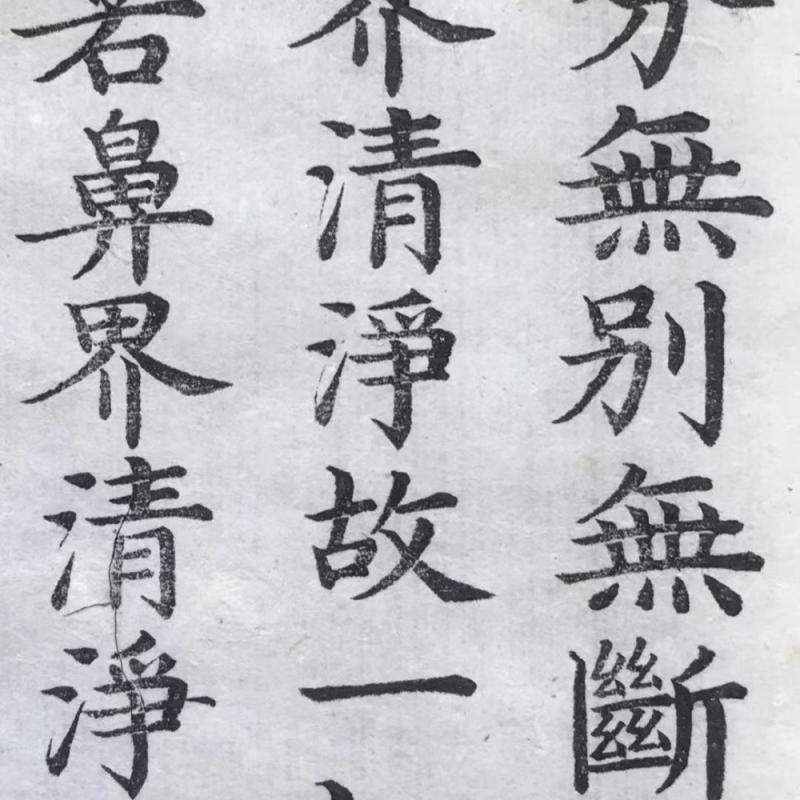 分無別無斷
界清淨故一
若鼻界清淨